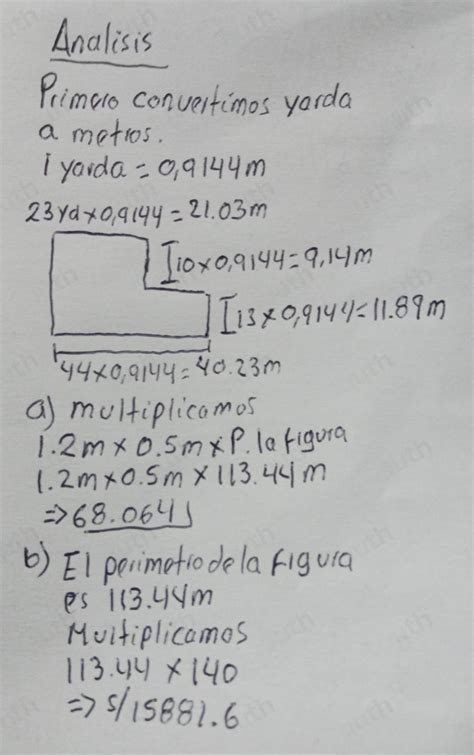 Analisis
Primero convertimos yarda
a metros.
1 yarda = 0,9144m
23yd×0,9144 = 21.03m
10×0,9144=9,14m
13×0,9144=11.89m
44×0,9144=40.23m
a) multiplicamos
1.2m × 0.5m × P. la figura
1.2m×0.5m × 113.44m
⇒ 68.064
b) El perimetro de la figura
es 113.44m
Multiplicamos
113.44 × 140
⇒ S/15881.6